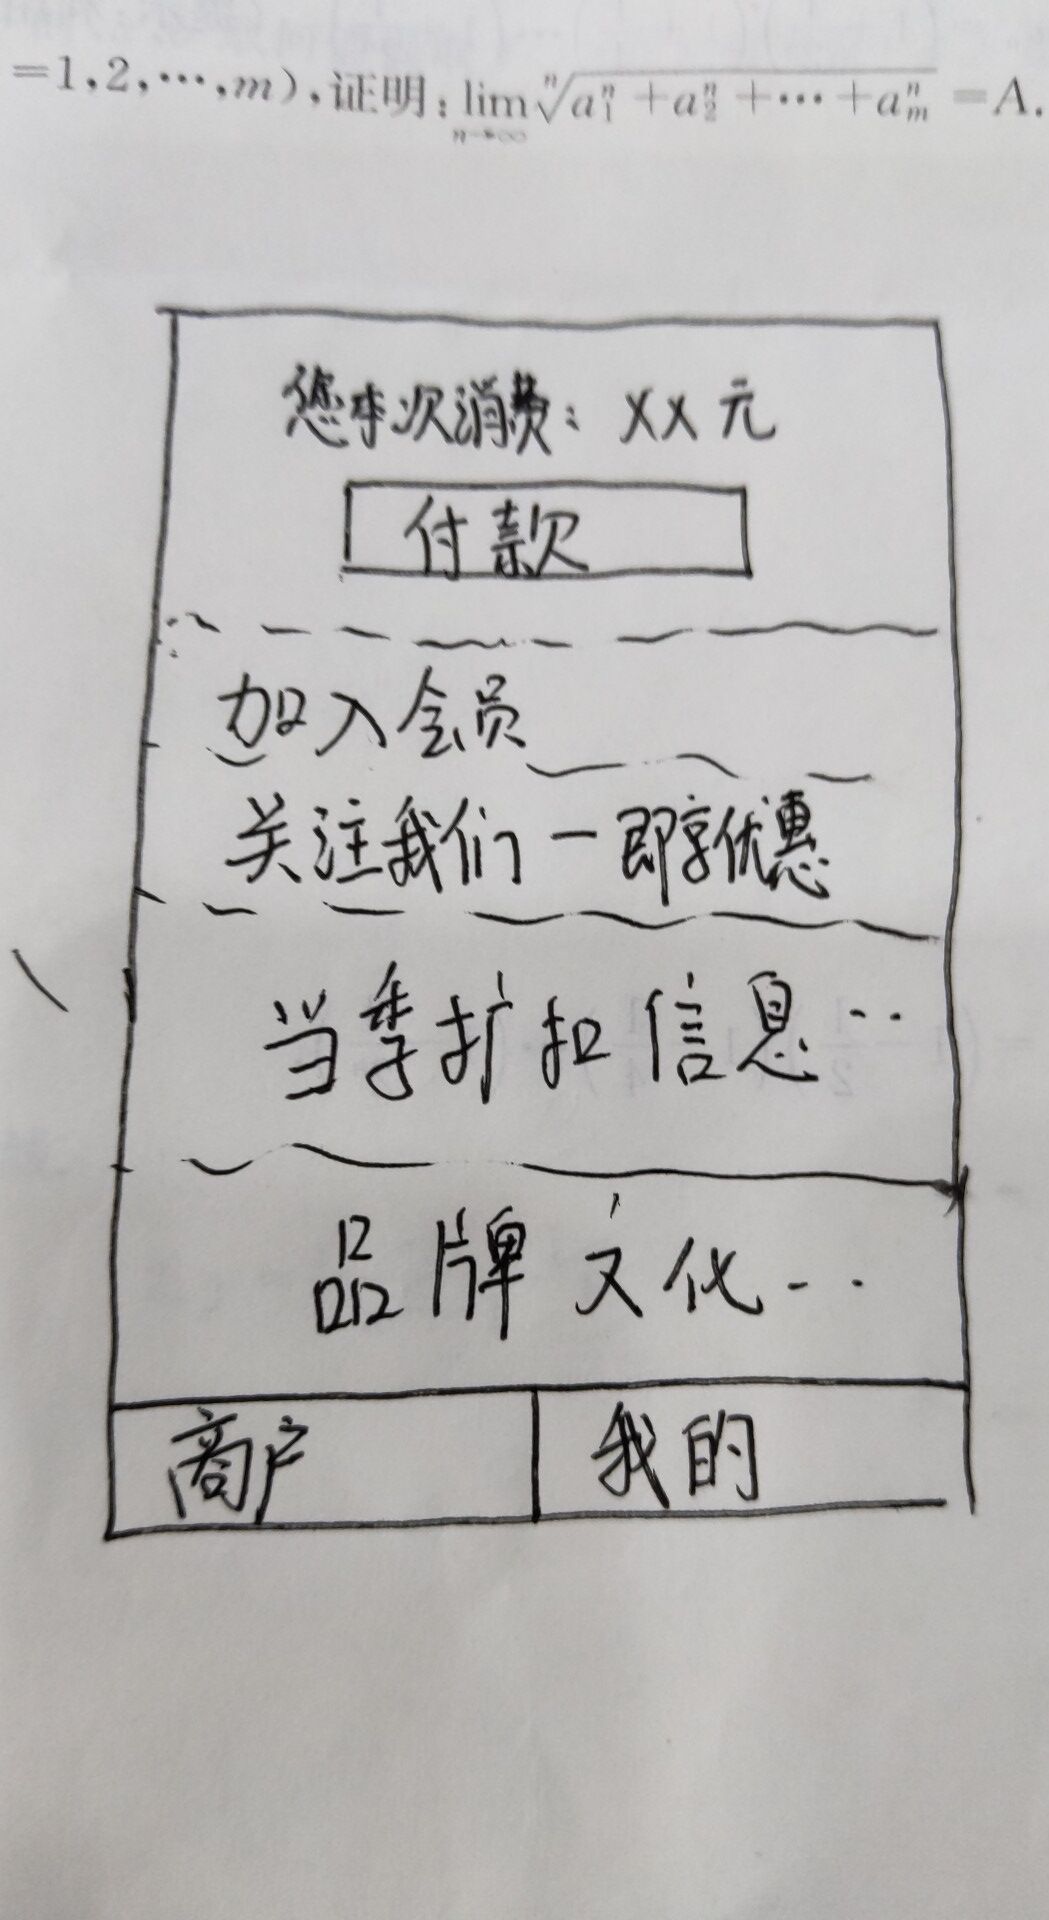 =1,2,…,m),证明:lim n→∞ ⁿ√(a₁ⁿ+a₂ⁿ+…+aₘⁿ)=A.
您本次消费：XX元
付款
加入会员
关注我们一即享优惠
当季扩扣信息…
品牌文化...
商户 我的